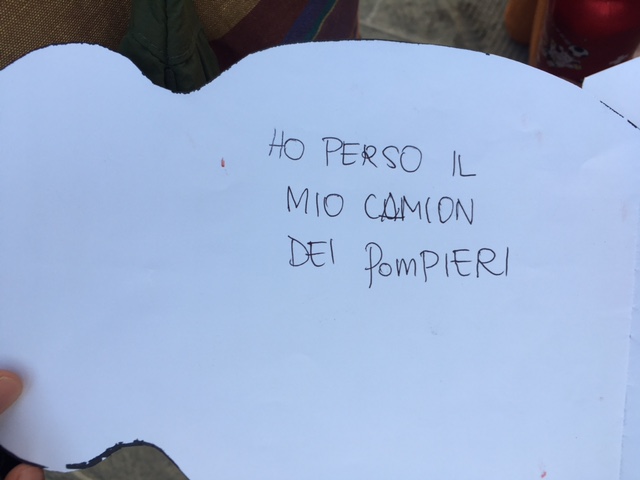 HO PERSO IL
MIO CAMION
DEI POMPIERI